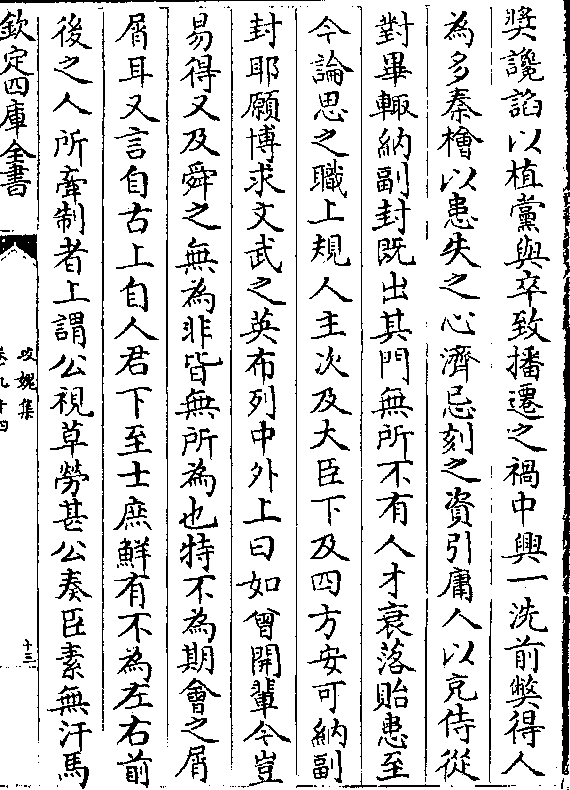 奨讒謟以植黨與卒致播遷之禍中興一洗前弊得人
為多秦檜以患失之心濟忌刻之資引庸人以充侍從
對畢輙納副封既出其門無所不有人才衰落貽患至
今論思之職上規人主次及大臣下及四方安可納副
封耶願博求文武之英布列中外上曰如曾開輩今豈
易得又及舜之無為非皆無所為也特不為期會之屑
屑耳又言自古上自人君下至士庶鮮有不為左右前
後之人所牽制者上謂公視草勞甚公奏臣素無汗馬
欽定四庫全書
攻媿集
卷九十四
十三